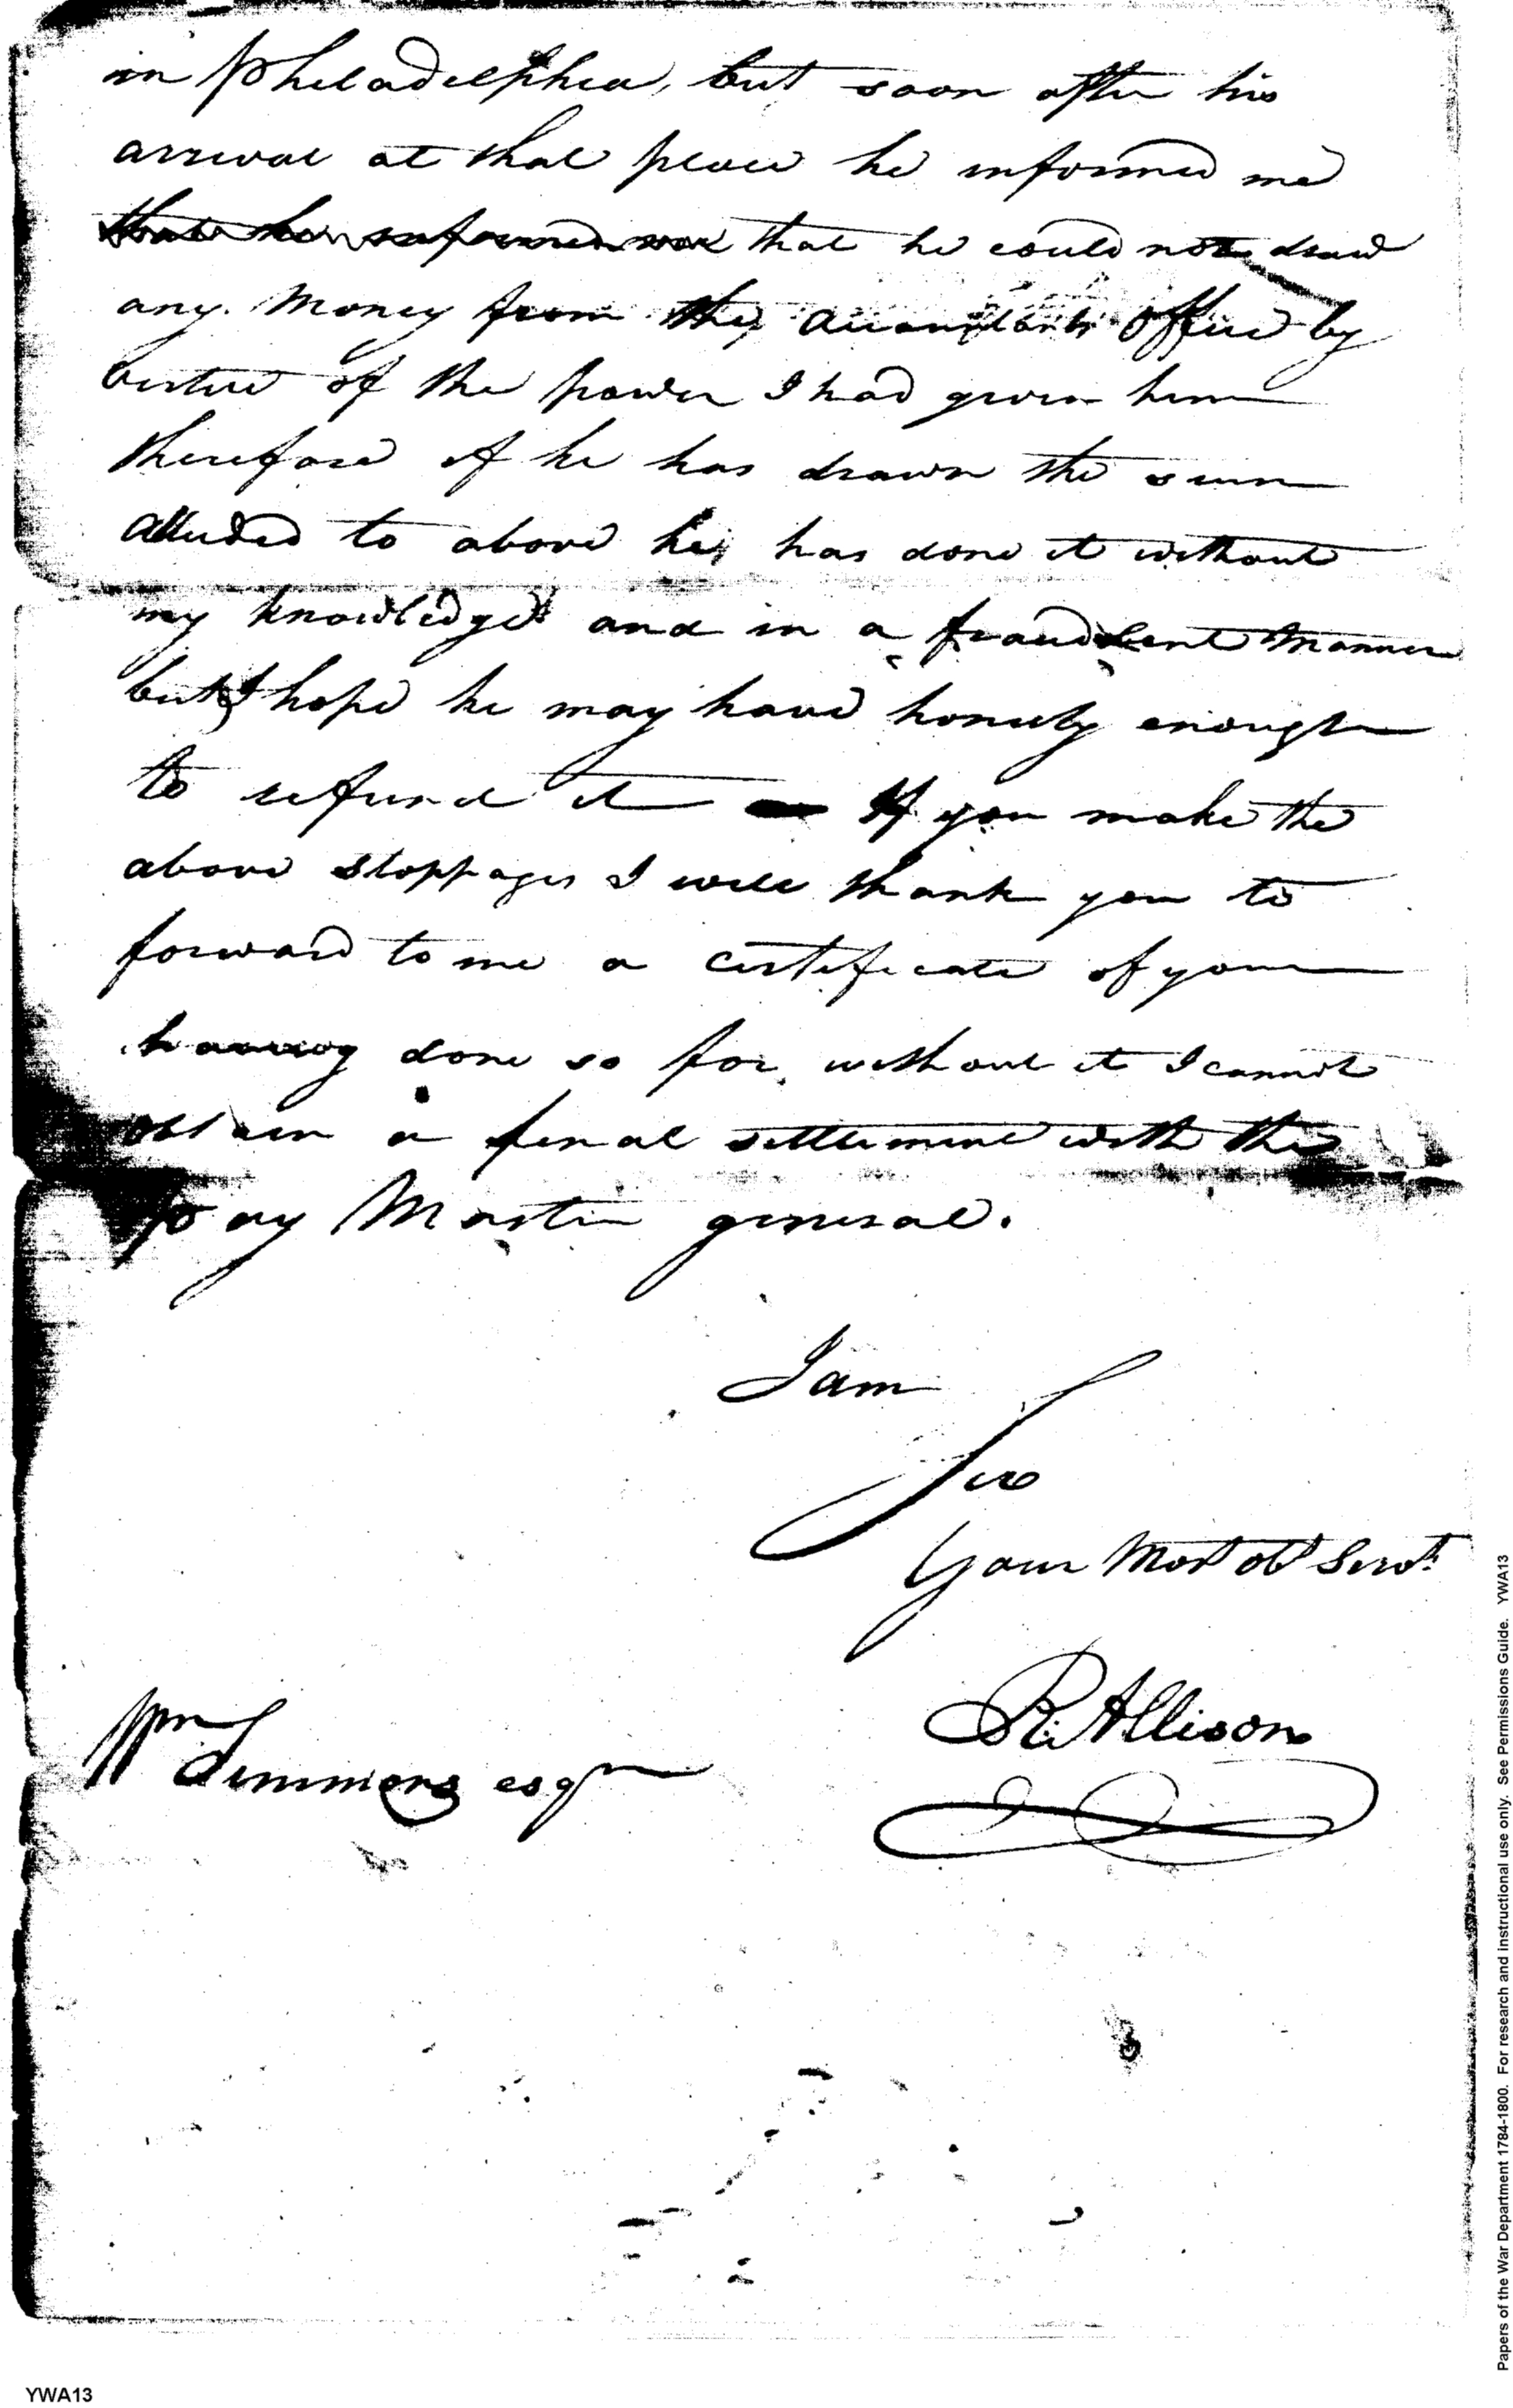 in Philadelphia, but soon after his
arrival at that place he informed me
that he informed me that he could not draw
any Money from the Accountants Office by
virtue of the power I had given him
therefore if he has drawn the sum
alluded to above he has done it without
my knowledge and in a fraudulent manner
but I hope he may have honesty enough
to refund it — If you make the
above stoppages I will thank you to
forward to me a certificate of your
having done so for without it I cannot
obtain a final settlement with the
pay Master general.
I am
Sir
Your Most obt Servt.
R. Allison
Wm Simmons esqr
Papers of the War Department 1784-1800. For research and instructional use only. See Permissions Guide. YWA13
YWA13